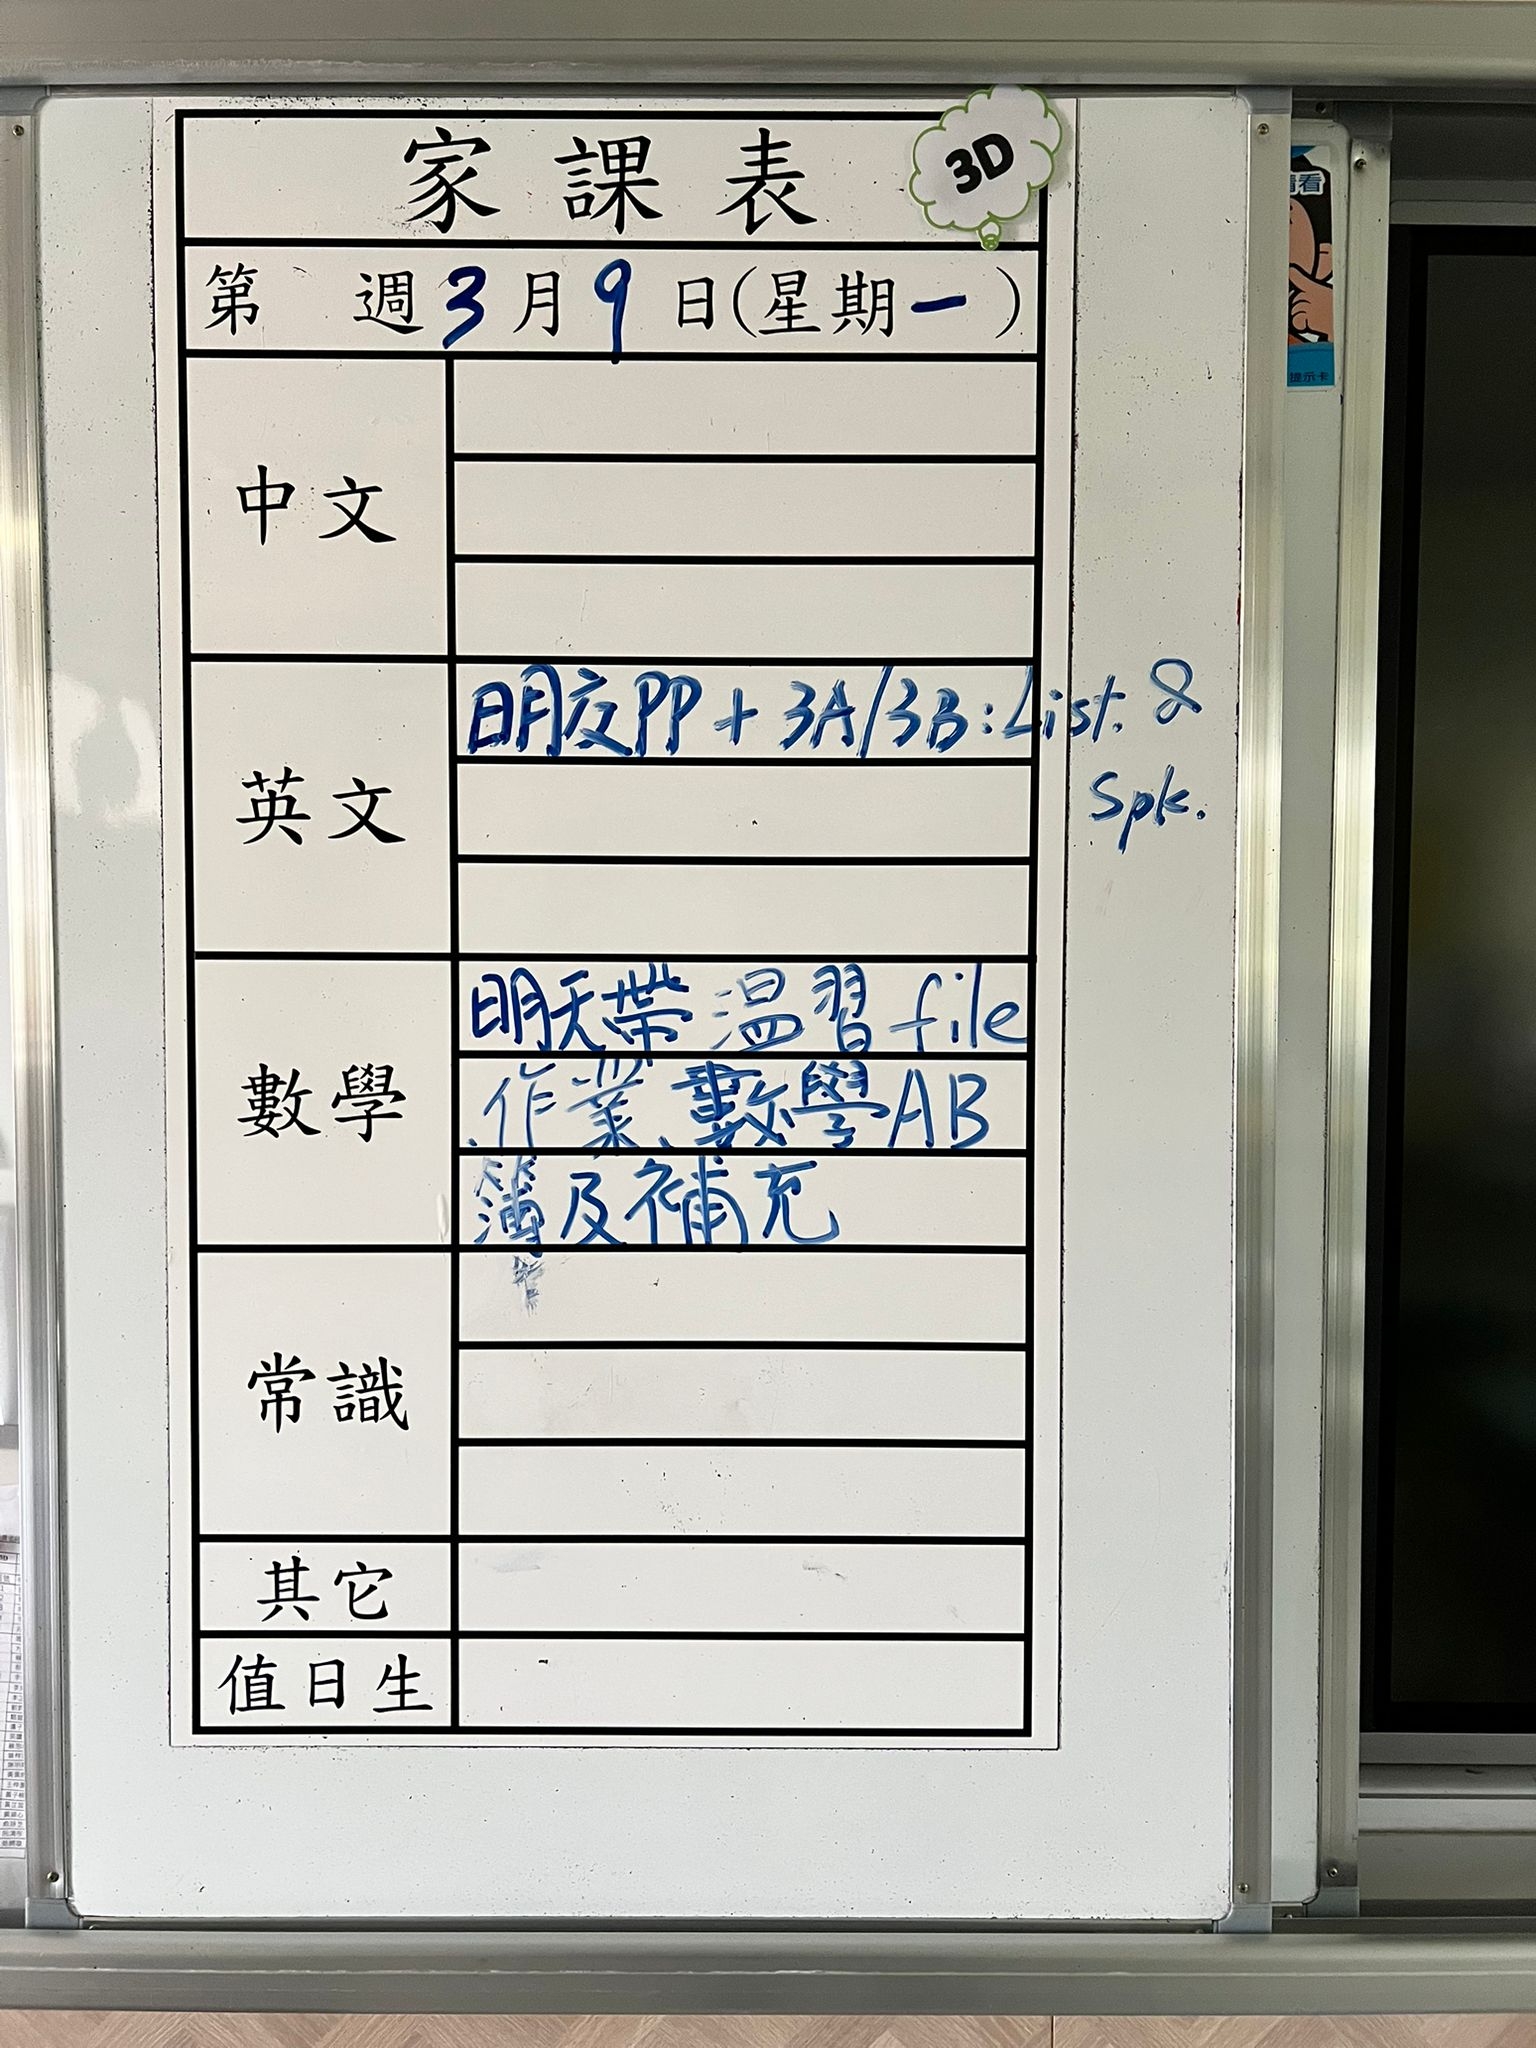 家課表
3D
第 週3月9日(星期一)
中文
英文
明交PP + 3A/3B: List. &
Spk.
數學
明天帶温習file
、作業、數學AB
簿及補充
常識
其它
值日生
請看
提示卡